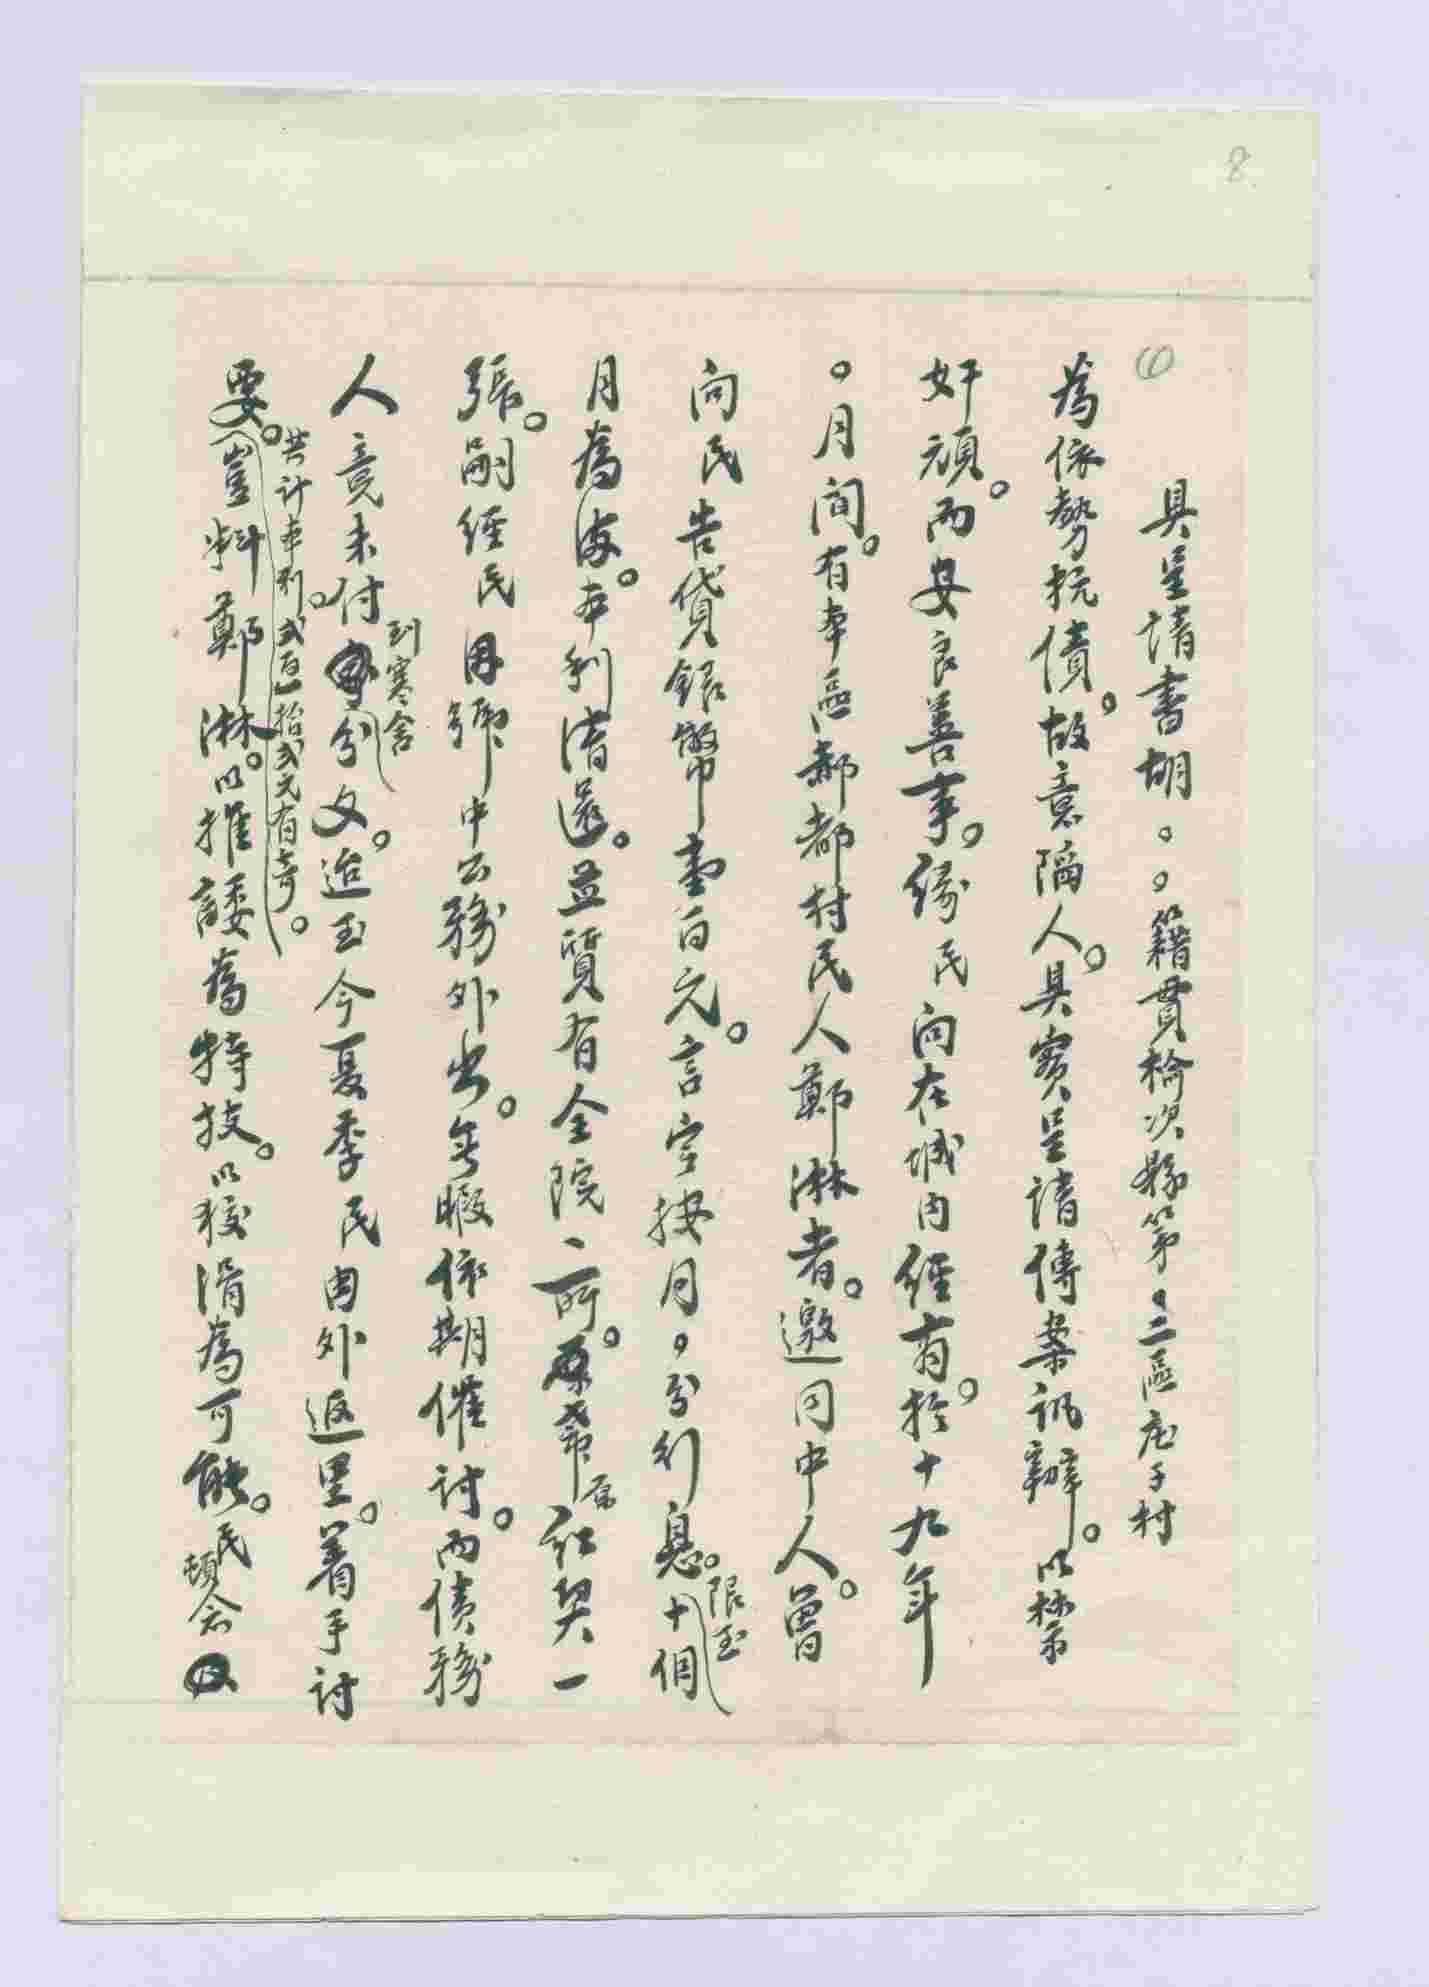 8
(1)
具呈請書胡。。籍貫榆次縣第。二區庄子村
為依勢抗債。故意陷人。具實呈請傳案訊辦。以禁
奸頑。而安良善事。緣民向在城內經商。於十九年
。月間。有本區郝都村民人鄭淋者。邀同中人。曾
向民告貸銀幣壹百元。言定按月。分行息。限至十個
月為滿。本利清還。並質有全院一所。原帶紅契一
張。嗣經民因號中公務外出。無暇依期催討。而債務
人竟未到寒舍付分文。迨至今夏季民由外返里。着手討
要。共計本利。貳百一拾貳元有奇。
豈料鄭淋。以推諉為特技。以狡滑為可能。民頓念